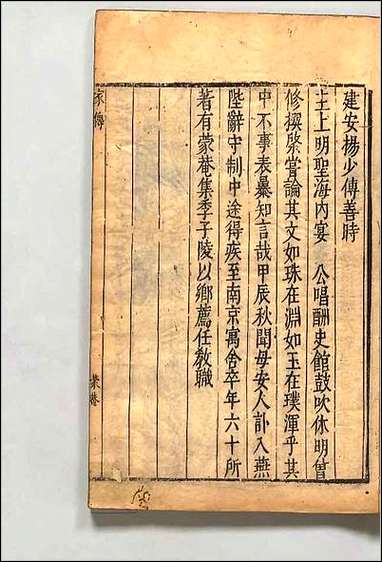 建安楊少傅善時
主上明聖海內宴　公唱酬史館鼓吹休明曾
修撰棨嘗論其文如珠在淵如玉在璞渾乎其
中不事表暴知言哉甲辰秋聞母安人訃入燕
陛辭守制中途得疾至南京寓舍卒年六十所
著有蒙菴集季子陵以鄉薦任教職
家傳